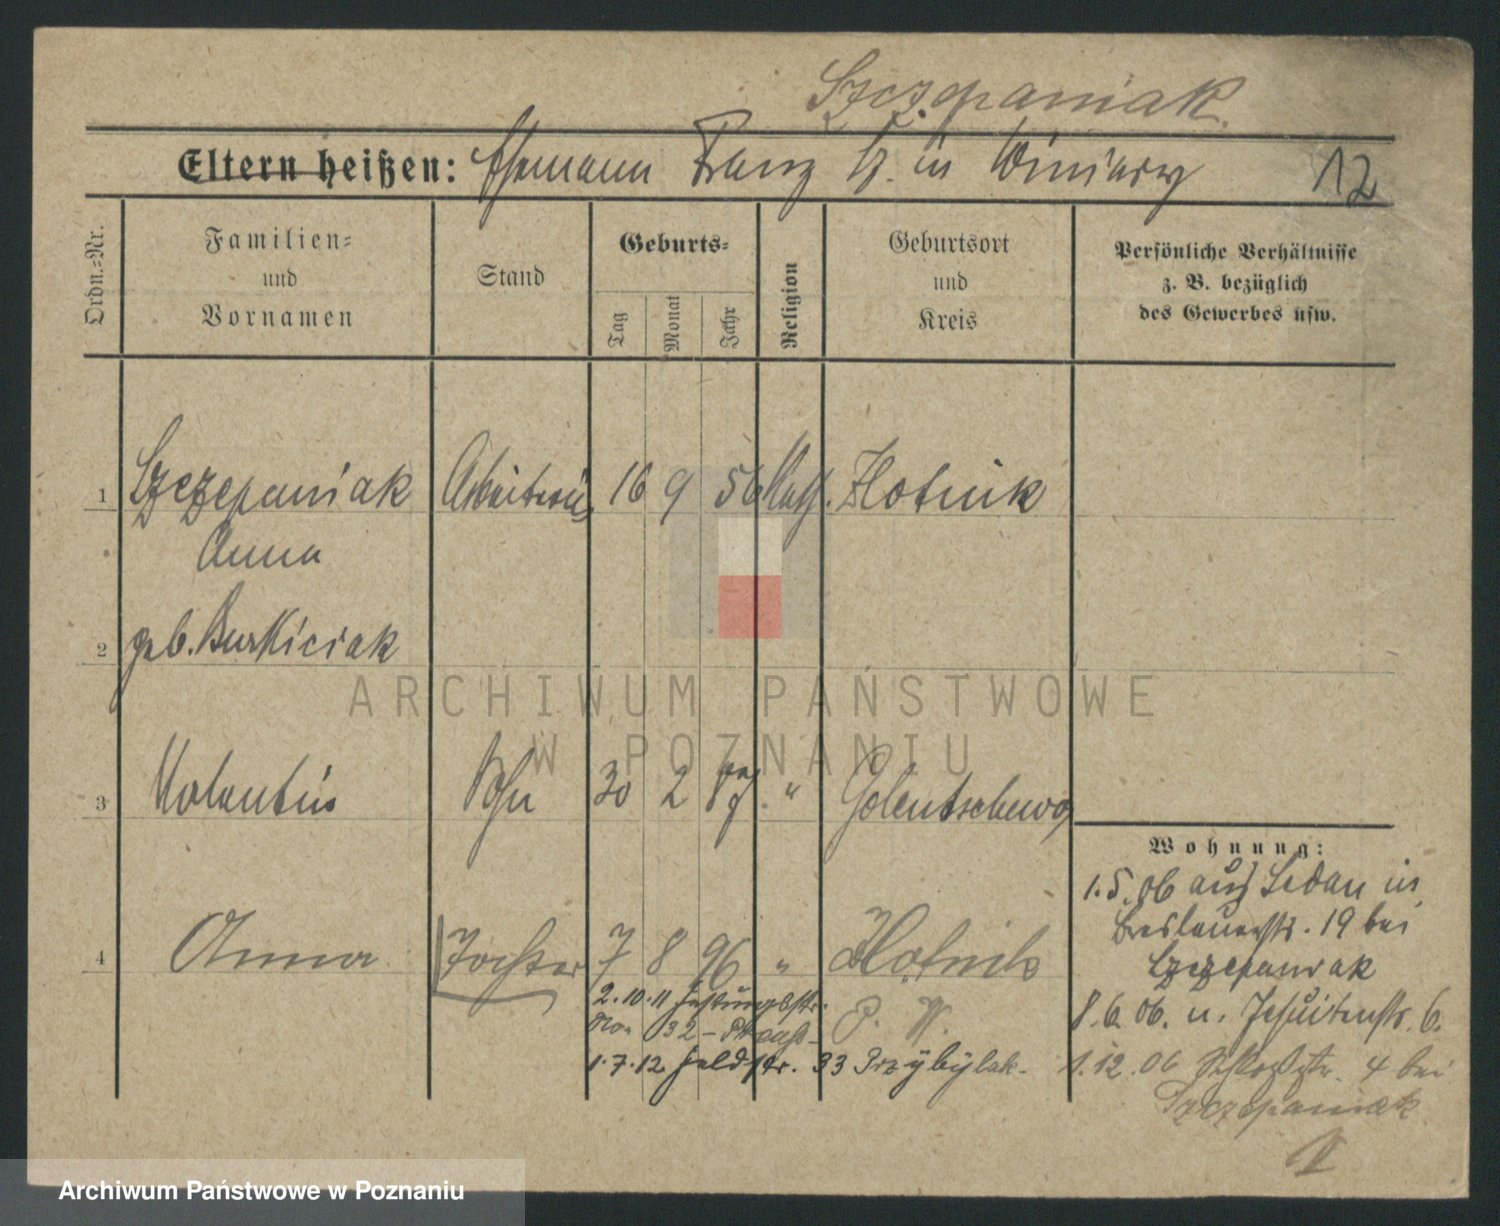 Szczepaniak
Eltern heißen: Ehemann Franz Sz. in Winiary 12
Ordn.=Nr.
Familien=
und
Vornamen
Stand
Geburts=
Tag
Monat
Jahr
Religion
Geburtsort
und
Kreis
Persönliche Verhältnisse
z. B. bezüglich
des Gewerbes usw.
1 Szczepaniak Arbeiterin 16 9 56 Kath. Zlotnik
Anna
2 geb.
ARCHIWUM PAŃSTWOWE
W POZNANIU
3 Valentin Sohn 30 2 " Golentschewo
4 Anna Tochter 7 8 96 " Zlotnik
Wohnung:
1.5.06 aus Sedan in
Breslauerstr. 19 bei
Szczepaniak
8.6.06. u. Jesuitenstr. 6.
1.12.06 Schloßstr. 4 bei
Szczepaniak
2.10.11
32 - P. W.
1.7.12 Feldstr. 33 Przybylak.
Archiwum Państwowe w Poznaniu